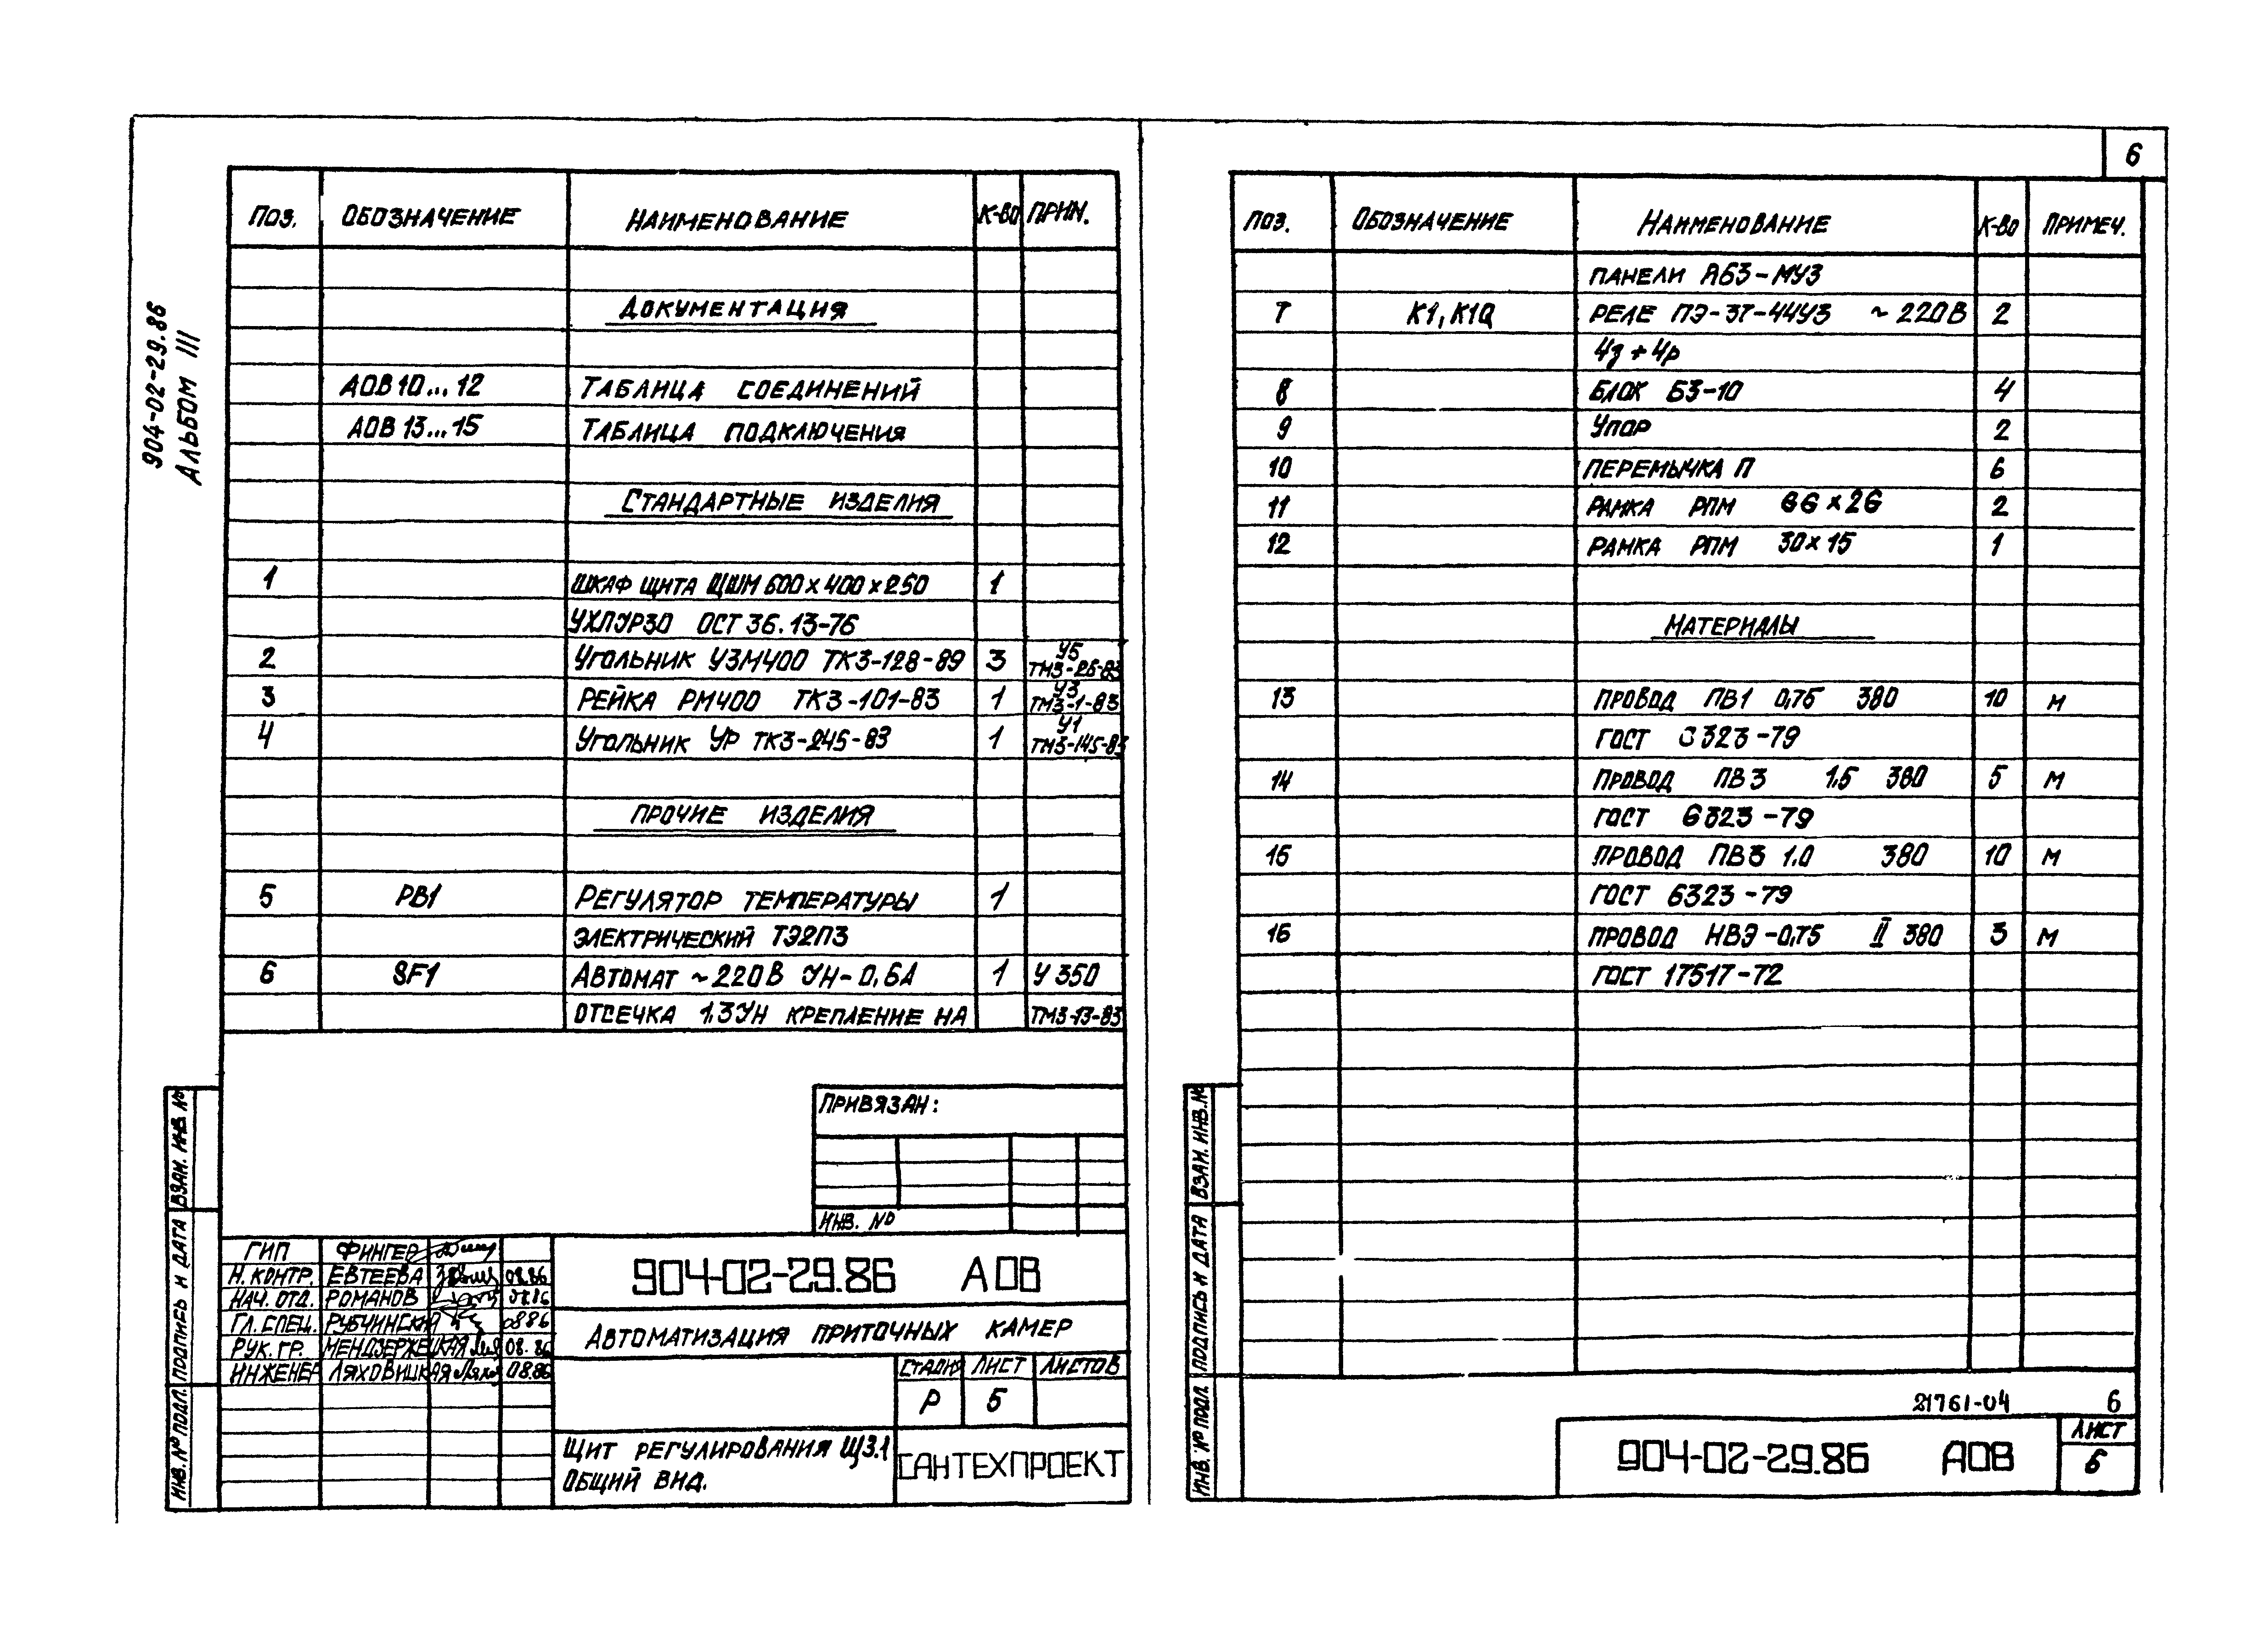 904-02-29.86
АЛЬБОМ III
ПОЗ. ОБОЗНАЧЕНИЕ НАИМЕНОВАНИЕ К-ВО ПРИМ.
ДОКУМЕНТАЦИЯ
АОВ 10...12 ТАБЛИЦА СОЕДИНЕНИЙ
АОВ 13...15 ТАБЛИЦА ПОДКЛЮЧЕНИЯ
СТАНДАРТНЫЕ ИЗДЕЛИЯ
1 ШКАФ ЩИТА ЩШМ 600х400х250 1
УХЛУР30 ОСТ 36.13-76
2 УГОЛЬНИК УЗМ400 ТК3-128-89 3 У5 ТМ3-26-83
3 РЕЙКА РМ400 ТК3-101-83 1 У3 ТМ3-1-83
4 УГОЛЬНИК УР ТК3-245-83 1 У1 ТМ3-145-83
ПРОЧИЕ ИЗДЕЛИЯ
5 РВ1 РЕГУЛЯТОР ТЕМПЕРАТУРЫ 1
ЭЛЕКТРИЧЕСКИЙ ТЭ2П3
6 SF1 АВТОМАТ ~220В УН-0,6А 1 У 350
ОТСЕЧКА 1,3УН КРЕПЛЕНИЕ НА ТМ3-13-83
ПРИВЯЗАН:
ИНВ. №
ВЗАМ. ИНВ. №
ПОДПИСЬ И ДАТА
ИНВ. № ПОДЛ.
ГИП ФИНГЕР
Н. КОНТР. ЕВТЕЕВА 08.86
НАЧ. ОТД. РОМАНОВ 08.86
ГЛ. СПЕЦ. РУБЧИНСКИЙ 0886
РУК. ГР. МЕНДЗЕРЖЕЦКАЯ 08.86
ИНЖЕНЕР ЛЯХОВИЦКАЯ 08.86
904-02-29.86 АОВ
АВТОМАТИЗАЦИЯ ПРИТОЧНЫХ КАМЕР
СТАДИЯ ЛИСТ ЛИСТОВ
Р 5
ЩИТ РЕГУЛИРОВАНИЯ Щ3.1
ОБЩИЙ ВИД.
САНТЕХПРОЕКТ
6
ПОЗ. ОБОЗНАЧЕНИЕ НАИМЕНОВАНИЕ К-ВО ПРИМЕЧ.
ПАНЕЛИ АБ3-МУ3
7 К1, К1Q РЕЛЕ ПЭ-37-44У3 ~220В 2
4з+4р
8 БЛОК БЗ-10 4
9 УПОР 2
10 ПЕРЕМЫЧКА П 6
11 РАМКА РПМ 66х26 2
12 РАМКА РПМ 30х15 1
МАТЕРИАЛЫ
13 ПРОВОД ПВ1 0,75 380 10 М
ГОСТ 6323-79
14 ПРОВОД ПВ3 1,5 380 5 М
ГОСТ 6323-79
15 ПРОВОД ПВ3 1.0 380 10 М
ГОСТ 6323-79
16 ПРОВОД НВЭ-0,75 II 380 3 М
ГОСТ 17517-72
ВЗАМ. ИНВ. №
ПОДПИСЬ И ДАТА
ИНВ. № ПОДЛ.
21761-04 6
904-02-29.86 АОВ
ЛИСТ
6